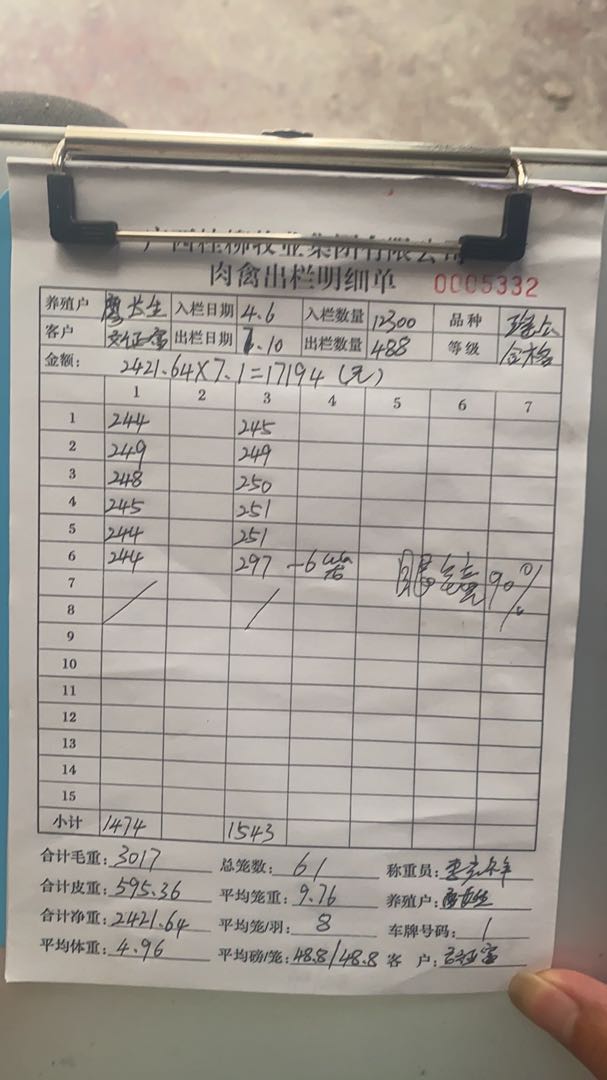 广西桂柳牧业集团有限公司
肉禽出栏明细单 0005332
养殖户 廖长生 入栏日期 4.6 入栏数量 12300 品种
客户 出栏日期 7.10 出栏数量 488 等级 合格
金额: 2421.64×7.1=17194（元）
1 2 3 4 5 6 7
1 244 245
2 249 249
3 248 250
4 245 251
5 244 251
6 244 297 -6 90%
7
8
9
10
11
12
13
14
15
小计 1474 1543
合计毛重: 3017 总笼数: 61 称重员:
合计皮重: 595.36 平均笼重: 9.76 养殖户: 廖长生
合计净重: 2421.64 平均笼/羽: 8 车牌号码: 1
平均体重: 4.96 平均磅/笼: 48.8/48.8 客 户: